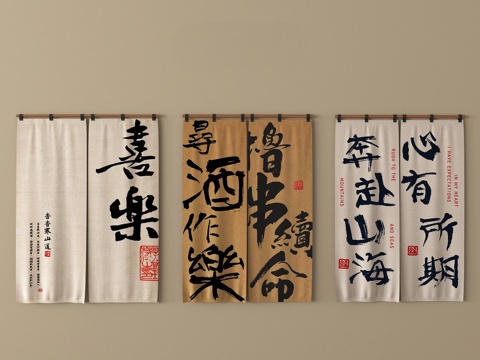 喜樂
杳杳寒山道
擼串續命
尋酒作樂
心有所期
I HAVE EXPECTATIONS
IN MY HEART
奔赴山海
RUSH TO THE
MOUNTAINS
AND SEAS